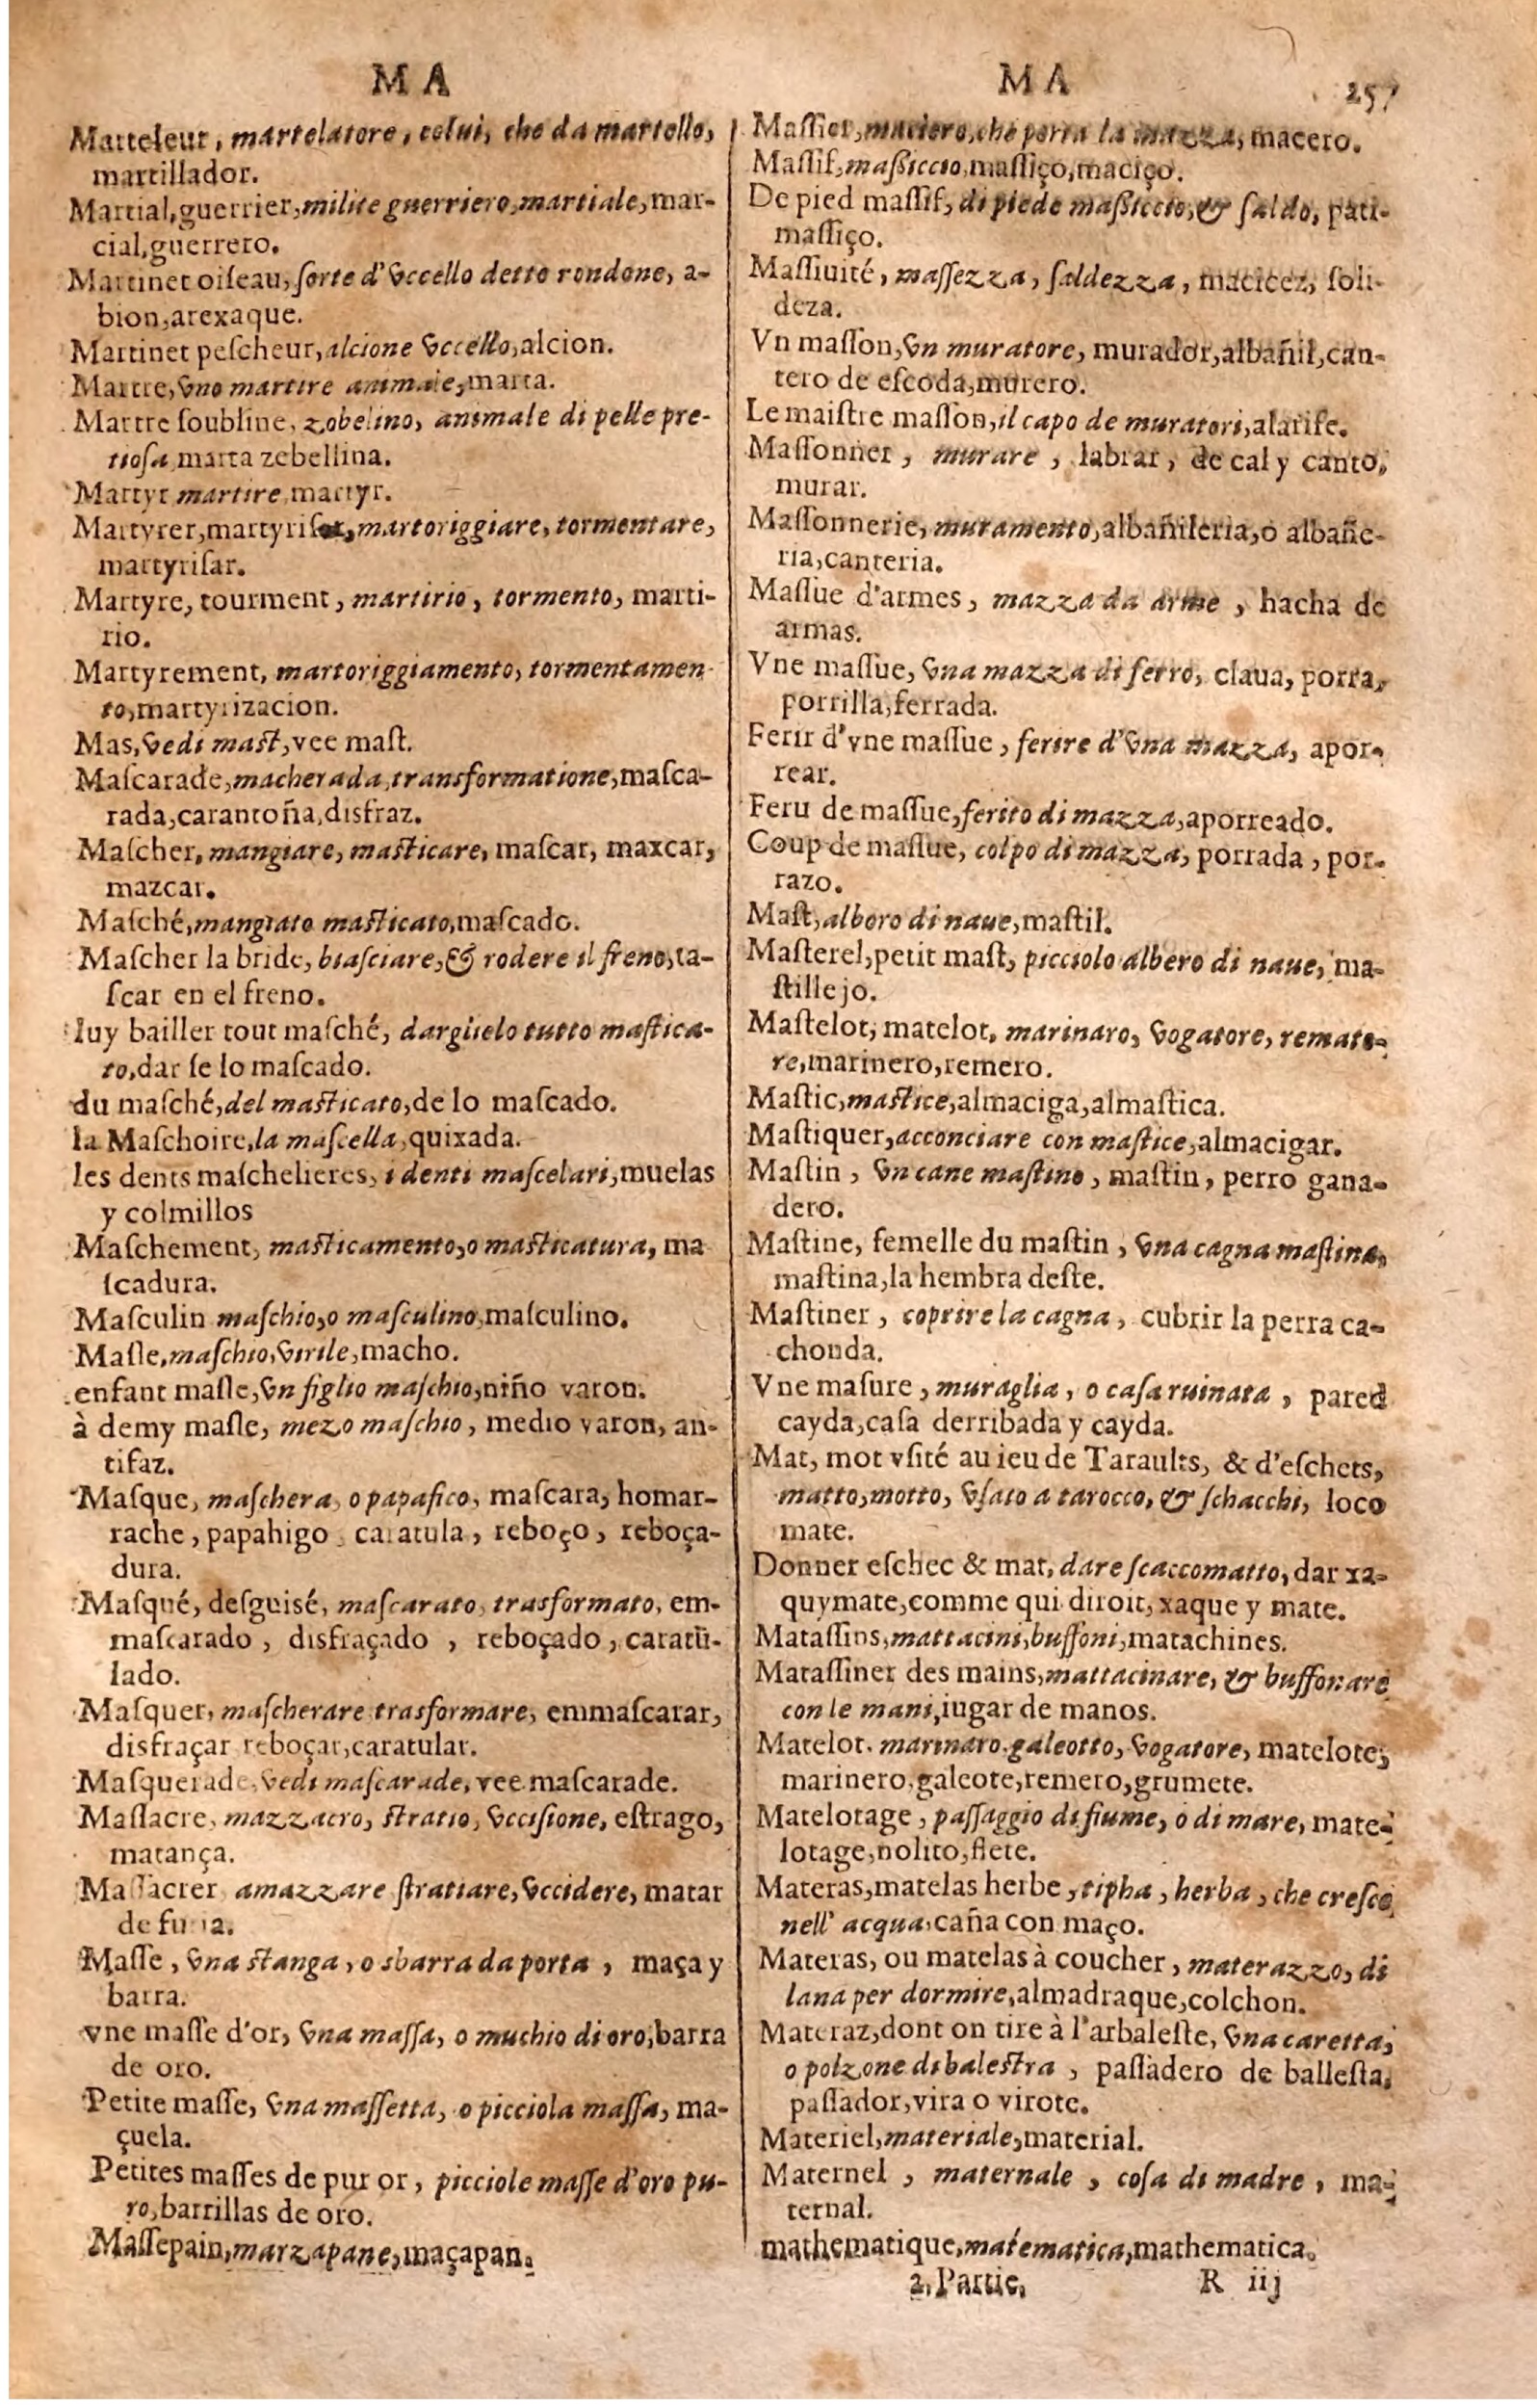 M A
Marteleur, martelatore, colui, che da martello,
martillador.
Martial, guerrier, milite guerriero, martiale, mar-
cial, guerrero.
Martinet oiſeau, ſorte d'vccello detto rondone, a-
bion, arexaque.
Martinet peſcheur, alcione vccello, alcion.
Martre, vno martire animale, marta.
Martre ſoubline, zobelino, animale di pelle pre-
tioſa, marta zebellina.
Martyr martire, martyr.
Martyrer, martyriſer, martoriggiare, tormentare,
martyriſar.
Martyre, tourment, martirio, tormento, marti-
rio.
Martyrement, martoriggiamento, tormentamen-
to, martyrizacion.
Mas, vedi maſt, vee maſt.
Maſcarade, macherada, transformatione, maſca-
rada, carantoña, disfraz.
Maſcher, mangiare, maſticare, maſcar, maxcar,
mazcar.
Maſché, mangiato maſticato, maſcado.
Maſcher la bride, biaſciare, & rodere il freno, ta-
ſcar en el freno.
luy bailler tout maſché, darglielo tutto maſtica-
to, dar ſe lo maſcado.
du maſché, del maſticato, de lo maſcado.
la Maſchoire, la maſcella, quixada.
les dents maſchelieres, i denti maſcelari, muelas
y colmillos
Maſchement, maſticamento, o maſticatura, ma
ſcadura.
Maſculin maſchio, o maſculino, maſculino.
Maſle, maſchio, virile, macho.
enfant maſle, vn figlio maſchio, niño varon.
à demy maſle, mezo maſchio, medio varon, an-
tifaz.
Maſque, maſchera, o papafico, maſcara, homar-
rache, papahigo, caratula, reboço, reboça-
dura.
Maſqué, deſguisé, maſcarato, trasformato, em-
maſcarado, disfraçado, reboçado, caratu-
lado.
Maſquer, maſcherare trasformare, emmaſcarar,
disfraçar reboçar, caratular.
Maſquerade, vedi maſcarade, vee maſcarade.
Maſſacre, mazzacro, ſtratio, vcciſione, eſtrago,
matança.
Maſſacrer amazzare ſtratiare, vccidere, matar
de furia.
Maſſe, vna ſtanga, o sbarra da porta, maça y
barra.
vne maſſe d'or, vna maſſa, o muchio di oro, barra
de oro.
Petite maſſe, vna maſſetta, o picciola maſſa, ma-
çuela.
Petites maſſes de pur or, picciole maſſe d'oro pu-
ro, barrillas de oro.
Maſſepain, marzapane, maçapan.
M A
257
Maſſier, maciero, che porta la mazza, macero.
Maſſif, maßiccio, maſſiço, maciço.
De pied maſſif, di piede maßiccio, & ſaldo, pati-
maſſiço.
Maſſiuité, maſſezza, ſaldezza, macicez, ſoli-
deza.
Vn maſſon, vn muratore, murador, albañil, can-
tero de eſcoda, murero.
Le maiſtre maſſon, il capo de muratori, alarife.
Maſſonner, murare, labrar, de cal y canto,
murar.
Maſſonnerie, muramento, albañileria, o albañe-
ria, canteria.
Maſſue d'armes, mazza da arme, hacha de
armas.
Vne maſſue, vna mazza di ferro, claua, porra,
porrilla, ferrada.
Ferir d'vne maſſue, ferire d'vna mazza, apor-
rear.
Feru de maſſue, ferito di mazza, aporreado.
Coup de maſſue, colpo di mazza, porrada, por-
razo.
Maſt, alboro di naue, maſtil.
Maſterel, petit maſt, picciolo albero di naue, ma-
ſtillejo.
Maſtelot, matelot, marinaro, vogatore, remato-
re, marinero, remero.
Maſtic, maſtice, almaciga, almaſtica.
Maſtiquer, acconciare con maſtice, almacigar.
Maſtin, vn cane maſtino, maſtin, perro gana-
dero.
Maſtine, femelle du maſtin, vna cagna maſtina,
maſtina, la hembra deſte.
Maſtiner, coprire la cagna, cubrir la perra ca-
chonda.
Vne maſure, muraglia, o caſa ruinata, pared
cayda, caſa derribada y cayda.
Mat, mot vſité au ieu de Taraults, & d'eſchets,
matto, motto, vſato a tarocco, & ſchacchi, loco
mate.
Donner eſchec & mat, dare ſcaccomatto, dar xa-
quymate, comme qui diroit, xaque y mate.
Mataſſins, mattacini, buffoni, matachines.
Mataſſiner des mains, mattacinare, & buffonare
con le mani, iugar de manos.
Matelot. marinaro. galeotto, vogatore, matelote,
marinero, galeote, remero, grumete.
Matelotage, paſſaggio di fiume, o di mare, mate-
lotage, nolito, flete.
Materas, matelas herbe, tipha, herba, che creſce
nell' acqua, caña con maço.
Materas, ou matelas à coucher, materazzo, di
lana per dormire, almadraque, colchon.
Materaz, dont on tire à l'arbaleſte, vna caretta,
o polzone di baleſtra, paſſadero de balleſta,
paſſador, vira o virote.
Materiel, materiale, material.
Maternel, maternale, coſa di madre, ma-
ternal.
mathematique, matematica, mathematica.
2. Partie.
R iij